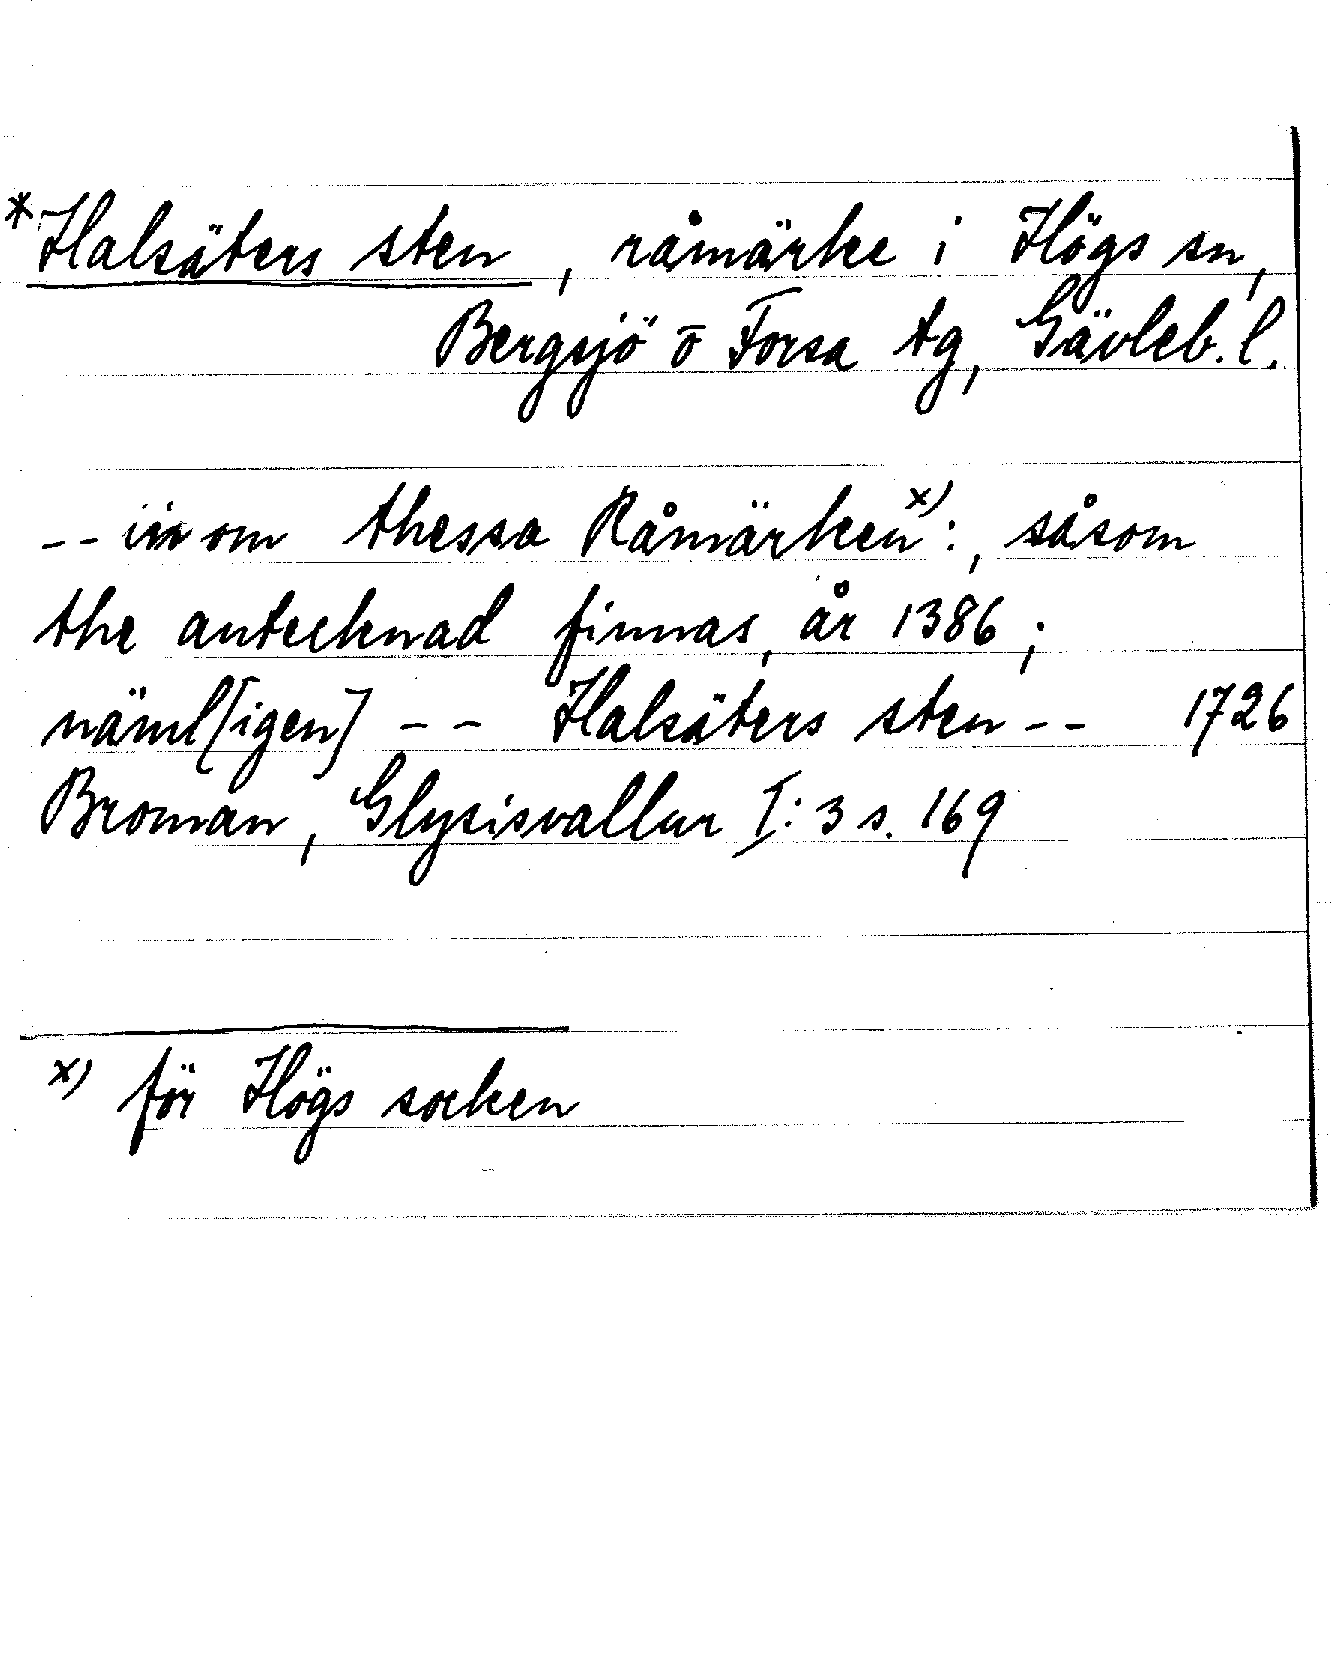 *Halsäters sten, råmärke i Högs sn,
Bergsjö o Forsa tg, Gävleb. l.
-- inom thessa Råmärken x): , såsom
the antecknad finnas, år 1386 ;
näml[igen] -- Halsäters sten -- 1726
Broman, Glysisvallur I: 3 s. 169
x) för Högs socken